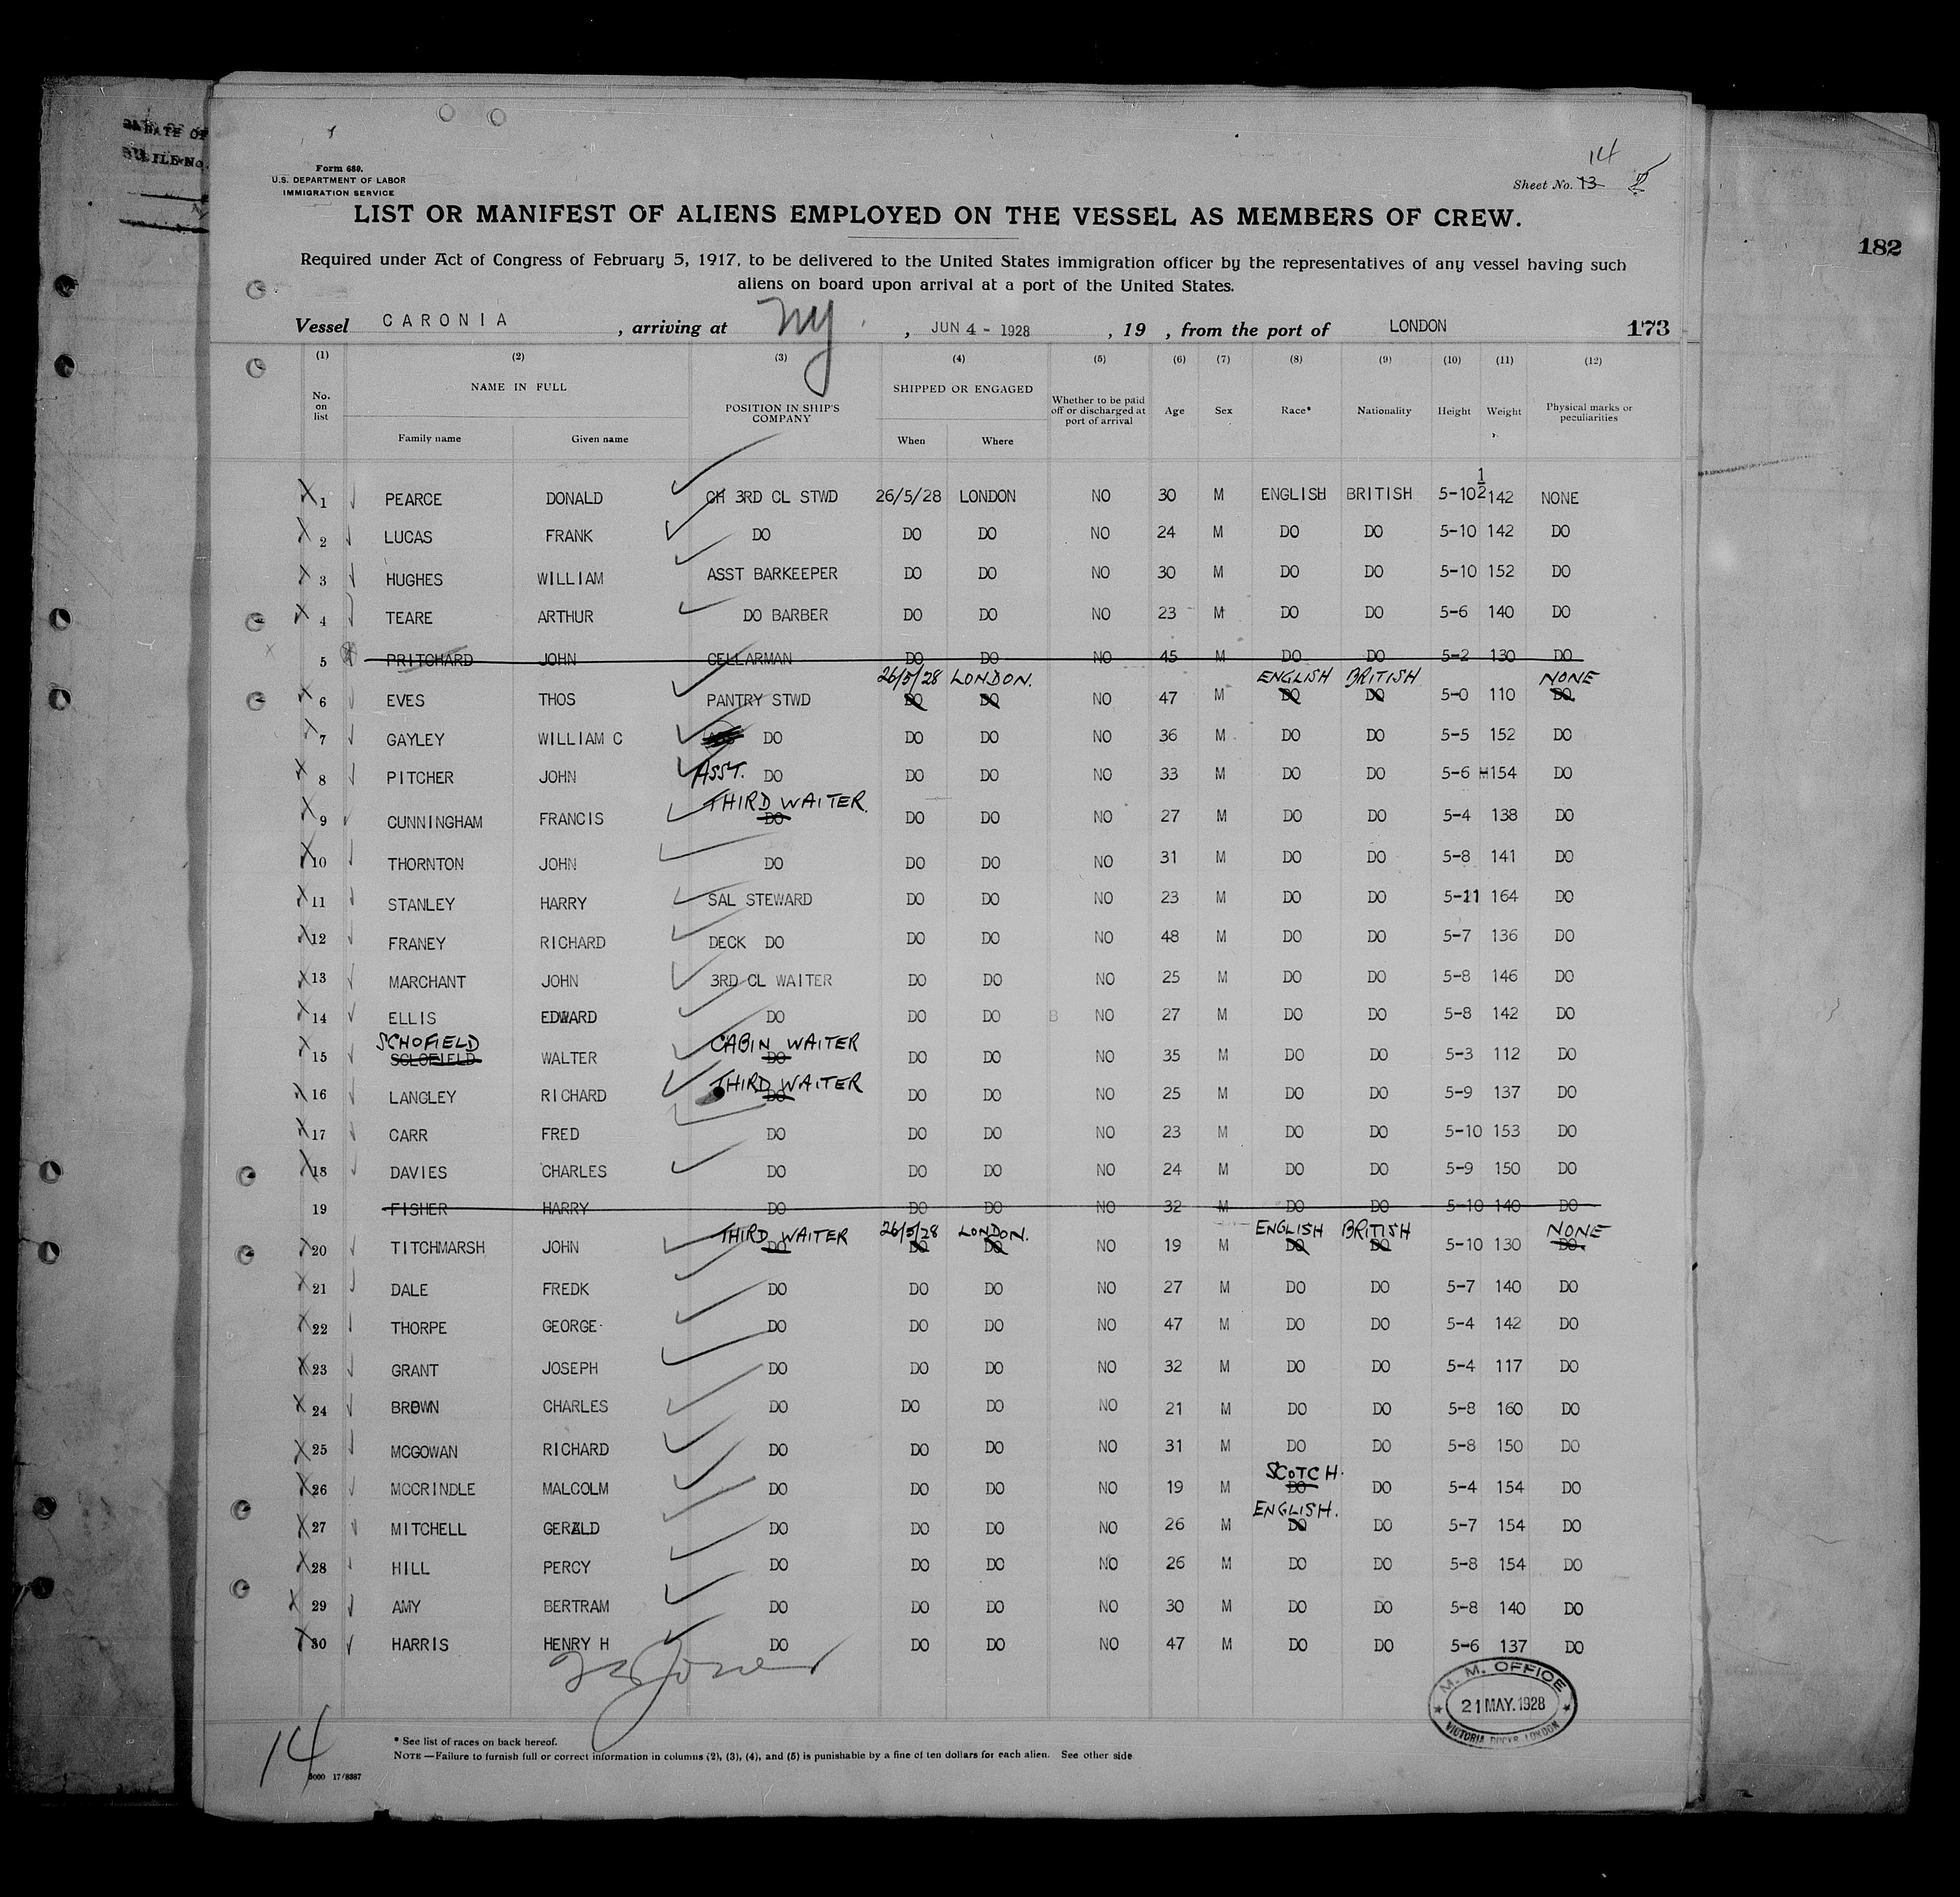 Form 680.
U.S. DEPARTMENT OF LABOR
IMMIGRATION SERVICE
14
Sheet No. 13
LIST OR MANIFEST OF ALIENS EMPLOYED ON THE VESSEL AS MEMBERS OF CREW.
Required under Act of Congress of February 5, 1917, to be delivered to the United States immigration officer by the representatives of any vessel having such
aliens on board upon arrival at a port of the United States.
182
Vessel CARONIA , arriving at NY , JUN 4 - 1928 , 19 , from the port of LONDON 173
(1) (2) (3) (4) (5) (6) (7) (8) (9) (10) (11) (12)
No. on list NAME IN FULL Family name Given name POSITION IN SHIP'S COMPANY SHIPPED OR ENGAGED When Where Whether to be paid off or discharged at port of arrival Age Sex Race* Nationality Height Weight Physical marks or peculiarities
1 PEARCE DONALD CH 3RD CL STWD 26/5/28 LONDON NO 30 M ENGLISH BRITISH 5-10 1/2 142 NONE
2 LUCAS FRANK DO DO DO NO 24 M DO DO 5-10 142 DO
3 HUGHES WILLIAM ASST BARKEEPER DO DO NO 30 M DO DO 5-10 152 DO
4 TEARE ARTHUR DO BARBER DO DO NO 23 M DO DO 5-6 140 DO
5 PRITCHARD JOHN CELLARMAN DO DO NO 45 M DO DO 5-2 130 DO
26/5/28 LONDON. ENGLISH BRITISH NONE
6 EVES THOS PANTRY STWD DO DO NO 47 M DO DO 5-0 110 DO
7 GAYLEY WILLIAM C DO DO DO NO 36 M DO DO 5-5 152 DO
8 PITCHER JOHN ASST. DO DO DO NO 33 M DO DO 5-6 154 DO
THIRD WAITER.
9 CUNNINGHAM FRANCIS DO DO DO NO 27 M DO DO 5-4 138 DO
10 THORNTON JOHN DO DO DO NO 31 M DO DO 5-8 141 DO
11 STANLEY HARRY SAL STEWARD DO DO NO 23 M DO DO 5-11 164 DO
12 FRANEY RICHARD DECK DO DO DO NO 48 M DO DO 5-7 136 DO
13 MARCHANT JOHN 3RD CL WAITER DO DO NO 25 M DO DO 5-8 146 DO
14 ELLIS EDWARD DO DO DO B NO 27 M DO DO 5-8 142 DO
SCHOFIELD CABIN WAITER
15 SCLOFIELD WALTER DO DO DO NO 35 M DO DO 5-3 112 DO
THIRD WAITER
16 LANGLEY RICHARD DO DO DO NO 25 M DO DO 5-9 137 DO
17 CARR FRED DO DO DO NO 23 M DO DO 5-10 153 DO
18 DAVIES CHARLES DO DO DO NO 24 M DO DO 5-9 150 DO
19 FISHER HARRY DO DO DO NO 32 M DO DO 5-10 140 DO
THIRD WAITER 26/5/28 LONDON. ENGLISH BRITISH NONE
20 TITCHMARSH JOHN DO DO DO NO 19 M DO DO 5-10 130 DO
21 DALE FREDK DO DO DO NO 27 M DO DO 5-7 140 DO
22 THORPE GEORGE DO DO DO NO 47 M DO DO 5-4 142 DO
23 GRANT JOSEPH DO DO DO NO 32 M DO DO 5-4 117 DO
24 BROWN CHARLES DO DO DO NO 21 M DO DO 5-8 160 DO
25 MCGOWAN RICHARD DO DO DO NO 31 M DO DO 5-8 150 DO
SCOTCH.
26 MCCRINDLE MALCOLM DO DO DO NO 19 M DO DO 5-4 154 DO
ENGLISH.
27 MITCHELL GERALD DO DO DO NO 26 M DO DO 5-7 154 DO
28 HILL PERCY DO DO DO NO 26 M DO DO 5-8 154 DO
29 AMY BERTRAM DO DO DO NO 30 M DO DO 5-8 140 DO
30 HARRIS HENRY H DO DO DO NO 47 M DO DO 5-6 137 DO
M. M. OFFICE
21 MAY. 1928
VICTORIA DOCKS LONDON
* See list of races on back hereof.
NOTE—Failure to furnish full or correct information in columns (2), (3), (4), and (5) is punishable by a fine of ten dollars for each alien. See other side
14
5000 17/8387